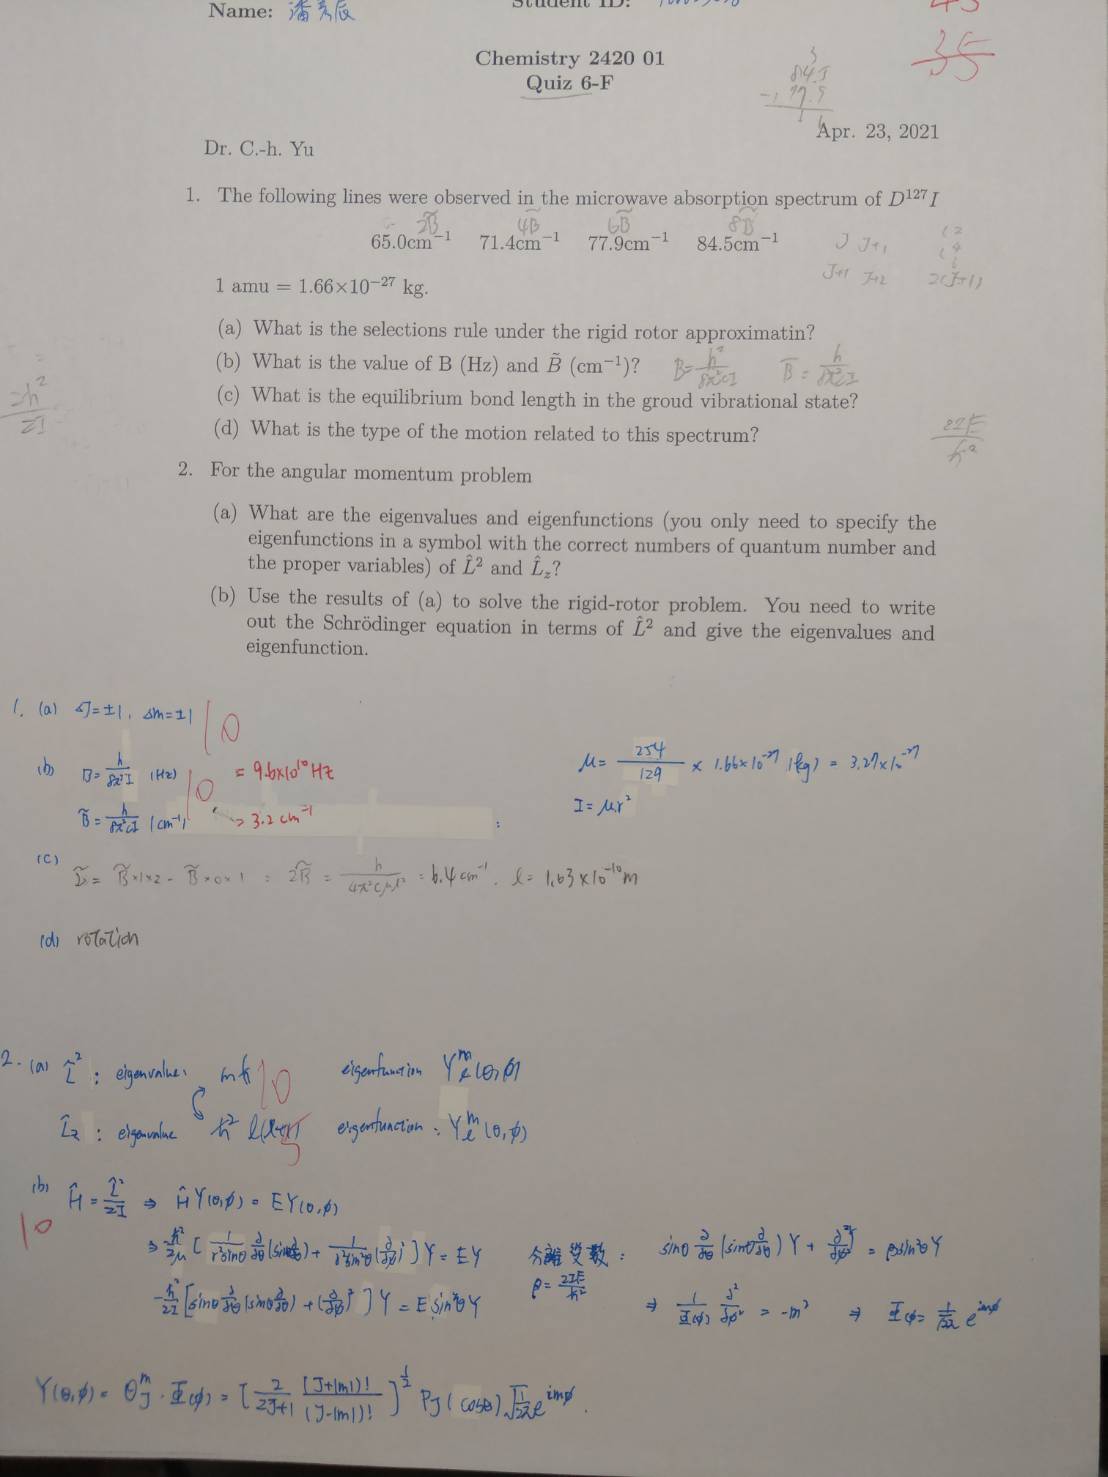 Name: 潘
Student ID:
35
Chemistry 2420 01
Quiz 6-F
84.5
- 77.9
Apr. 23, 2021
Dr. C.-h. Yu
1. The following lines were observed in the microwave absorption spectrum of D¹²⁷I
2B̃ 4B̃ 6B̃ 8B̃
65.0cm⁻¹ 71.4cm⁻¹ 77.9cm⁻¹ 84.5cm⁻¹
J J+1
J+1 J+2 2(J+1)
1 amu = 1.66×10⁻²⁷ kg.
(a) What is the selections rule under the rigid rotor approximatin?
(b) What is the value of B (Hz) and B̃ (cm⁻¹)?
(c) What is the equilibrium bond length in the groud vibrational state?
(d) What is the type of the motion related to this spectrum?
2IE/ħ²
2. For the angular momentum problem
(a) What are the eigenvalues and eigenfunctions (you only need to specify the
eigenfunctions in a symbol with the correct numbers of quantum number and
the proper variables) of L̂² and L̂z?
(b) Use the results of (a) to solve the rigid-rotor problem. You need to write
out the Schrödinger equation in terms of L̂² and give the eigenvalues and
eigenfunction.
1. (a) ΔJ=±1, Δm=±1 10
(b) B= h/8π²I (Hz) 10 = 9.6×10¹⁰ Hz
B̃= h/8π²cI (cm⁻¹) → 3.2 cm⁻¹
μ= 254/129 × 1.66×10⁻²⁷ (kg) = 3.27×10⁻²⁷
I=μr²
(c) = B̃×1×2 - B̃×0×1 = 2B̃ = h/4π²cμl² = 6.4 cm⁻¹. l= 1.63×10⁻¹⁰m
(d) rotation
2. (a) L̂² : eigenvalue: mħ 10 eigenfunction Yₗᵐ(θ,φ)
L̂z : eigenvalue ħ² l(l+1) 5 eigenfunction: Yₗᵐ(θ,φ)
(b) Ĥ = L̂²/2I ⇒ ĤY(θ,φ) = EY(θ,φ)
10
⇒ -ħ²/2μ [ 1/r²sinθ ∂/∂θ (sinθ ∂/∂θ) + 1/r²sin²θ (∂/∂φ)² ] Y = EY
-ħ²/2I [sinθ ∂/∂θ (sinθ ∂/∂θ) + (∂/∂φ)² ] Y = E sin²θ Y
分離變數: sinθ ∂/∂θ (sinθ ∂/∂θ) Y + ∂²Y/∂φ² = βsin²θ Y
β= 2IE/ħ²
⇒ 1/Φ(φ) ∂²/∂φ² = -m² ⇒ Φ(φ)= 1/√2π e^imφ
Y(θ,φ) = Θ_J^m · Φ(φ) = [ 2/2J+1 (J+|m|)!/(J-|m|)! ]^½ P_J (cosθ) √1/2π e^imφ.